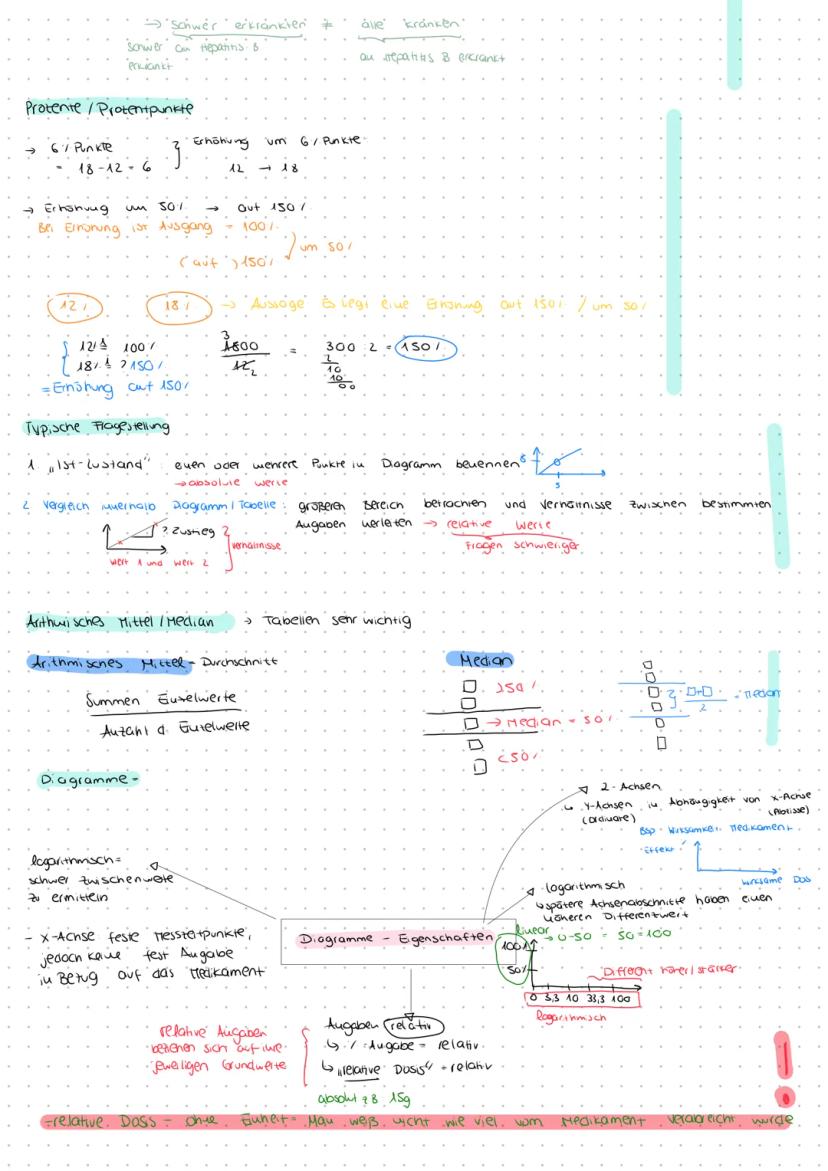 → Schwer erkrankten ≠ alle kranken
schwer an Hepatitis B
erkrankt
an Hepatitis B erkrankt
Prozente / Prozentpunkte
→ 6% Punkte
= 18-12 = 6
Erhöhung um 6% Punkte
12 → 18
→ Erhöhung um 50% → auf 150%
Bei Erhöhung ist Ausgang = 100%
um 50%
(auf) 150%
12% 18% → Aussage Es liegt eine Erhöhung auf 150% / um 50%
12% ≙ 100%
18% ≙ ? 150%
= Erhöhung auf 150%
3
1800
12 2
= 300 : 2 = 150%
2
10
10
00
Typische Fragestellung
1. „Ist-Zustand" : einen oder mehrere Punkte in Diagramm benennen
→ absolute Werte
8
5
2. Vergleich innerhalb Diagramm / Tabelle : größeren Bereich betrachten und Verhältnisse zwischen bestimmten
Angaben herleiten → relative Werte
Fragen schwieriger
? Zustieg
Verhältnisse
Wert 1 und Wert 2
Arithmisches Mittel / Median → Tabellen sehr wichtig
Arithmisches Mittel = Durchschnitt
Summen Einzelwerte
Anzahl d. Einzelwerte
Median
>50%
→ Median = 50%
<50%
2
= Median
Diagramme -
2 - Achsen
↳ Y-Achsen in Abhängigkeit von X-Achse
(Ordinate) (Abzisse)
Bsp. Wirksamkeit Medikament
Effekt
wirksame Dos
logarithmisch =
schwer Zwischenwerte
zu ermitteln
- X-Achse feste Messzeitpunkte,
jedoch keine fest Angabe
in Bezug auf das Medikament
logarithmisch
↳ spätere Achsenabschnitte haben einen
höheren Differenzwert
Diagramme - Eigenschaften
linear
→ 0-50 = 50=100
100%
50%
Differenz höher / stärker
0 3,3 10 33,3 100
logarithmisch
relative Angaben
beziehen sich auf ihre
jeweiligen Grundwerte
Angaben relativ
↳ % - Angabe = relativ
↳ „relative Dosis" = relativ
absolut z.B. 15g
!
-relative Doss = ohne Einheit = Man weiß nicht wie viel vom Medikament verabreicht wurde